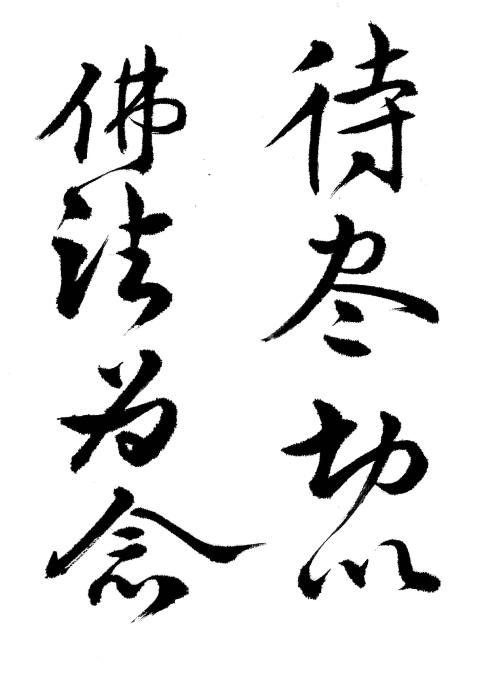 待尽切以
佛法为念